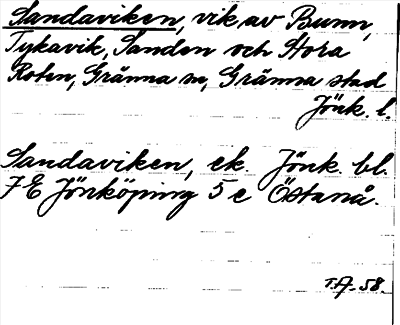 Sandaviken, vik av Bunn,
Tykavik, Sanden och Stora
Roten, Gränna sn, Gränna stad
Jönk. l.
Sandaviken, ek. Jönk. bl.
7 E Jönköping 5 e Östanå.
T.A. 58.